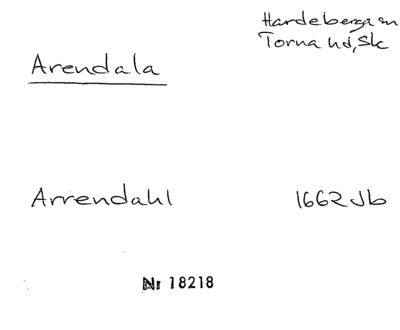 Hardeberga sn
Torna hd, Sk
Arendala
Arrendahl 1662 Jb
Nr 18218